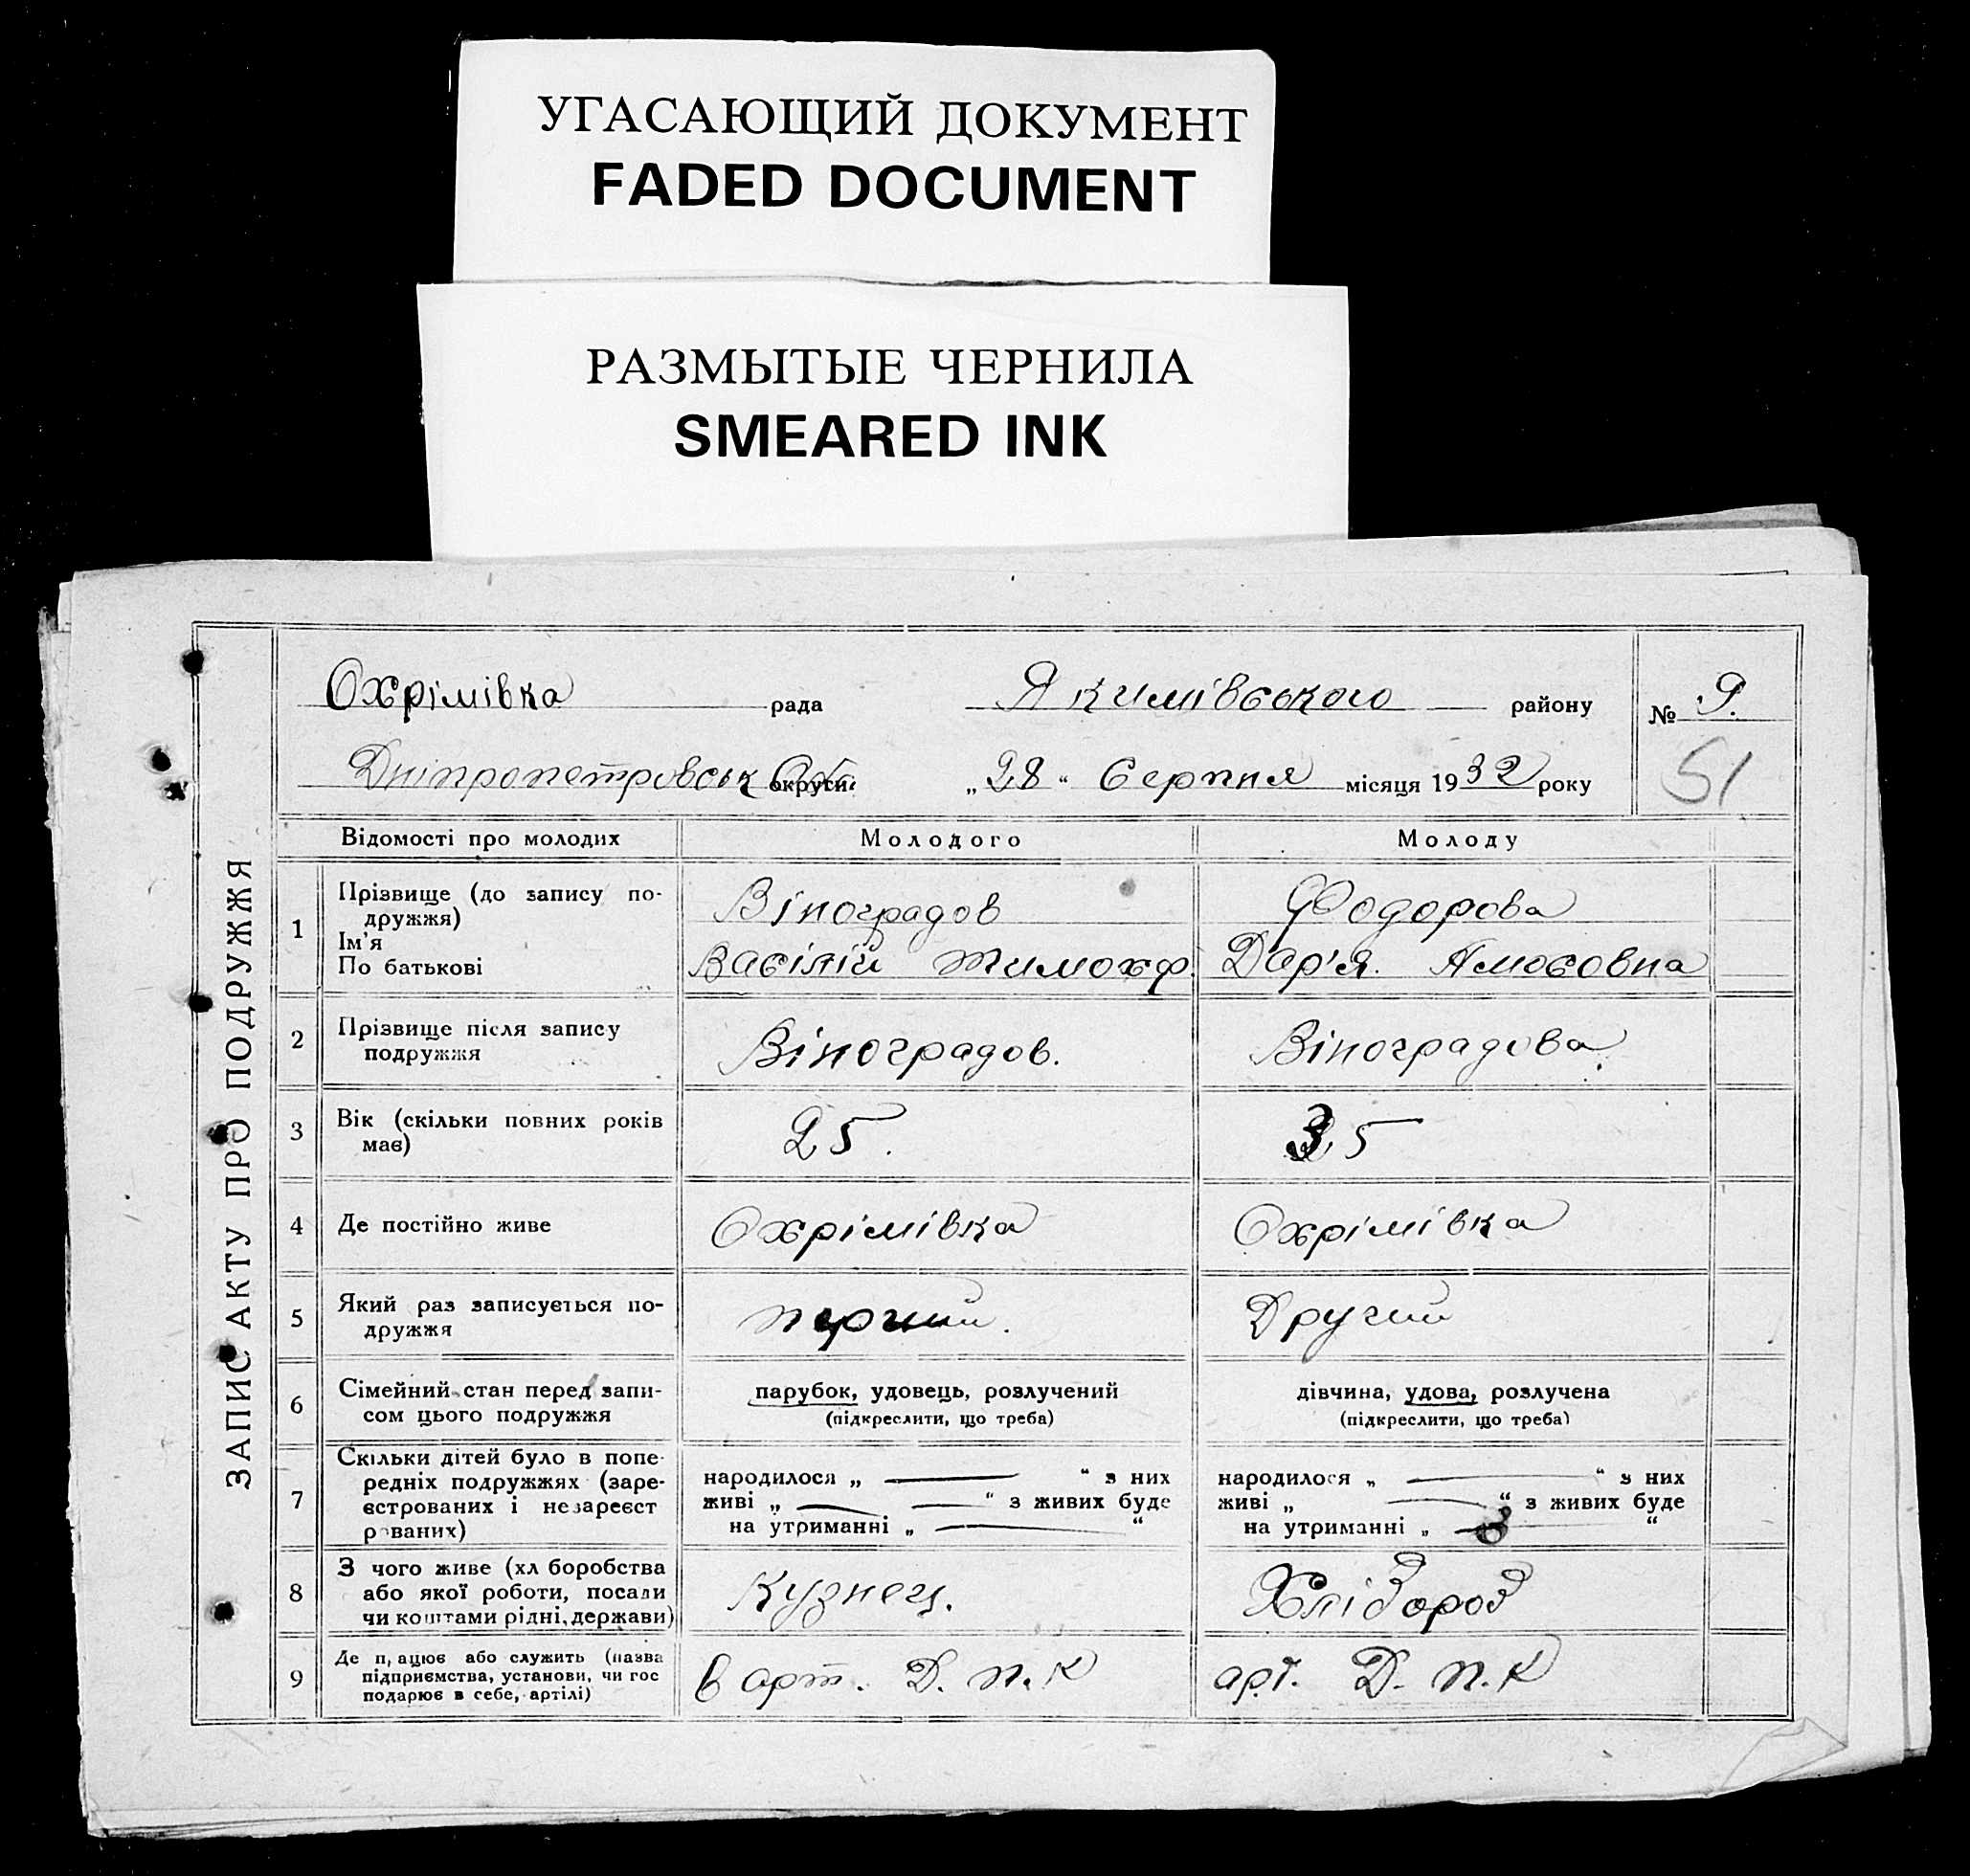 УГАСАЮЩИЙ ДОКУМЕНТ
FADED DOCUMENT
РАЗМЫТЫЕ ЧЕРНИЛА
SMEARED INK
ЗАПИС АКТУ ПРО ПОДРУЖЖЯ
Охрімівка рада Якимівського району № 9.
Дніпропетровськ округи „28“ Серпня місяця 1932 року 51
Відомості про молодих Молодого Молоду
1 Прізвище (до запису по-
дружжя) Віноградов Фодорова
Ім'я
По батькові Васілій Тимохф. Дар'я. Амосовна
2 Прізвище після запису
подружжя Віноградов. Віноградова.
3 Вік (скільки повних років
має) 25. 35
4 Де постійно живе Охрімівка Охрімівка
5 Який раз записується по-
дружжя перший. Другий
6 Сімейний стан перед запи-
сом цього подружжя парубок, удовець, розлучений дівчина, удова, розлучена
(підкреслити, що треба) (підкреслити, що треба)
7 Скільки дітей було в попе-
редніх подружжях (заре-
єстрованих і незареєст
рованих) народилося „ — “ з них народилося „ — “ з них
живі „ — “ з живих буде живі „ — “ з живих буде
на утриманні „ — “ на утриманні „ 3 “
8 З чого живе (хліборобства
або якої роботи, посади
чи коштами рідні, держави) Кузнец. Хлібороб
9 Де працює або служить (назва
підприємства, установи, чи гос
подарює в себе, артілі) в арт. Д. п. к арт. Д. п. к